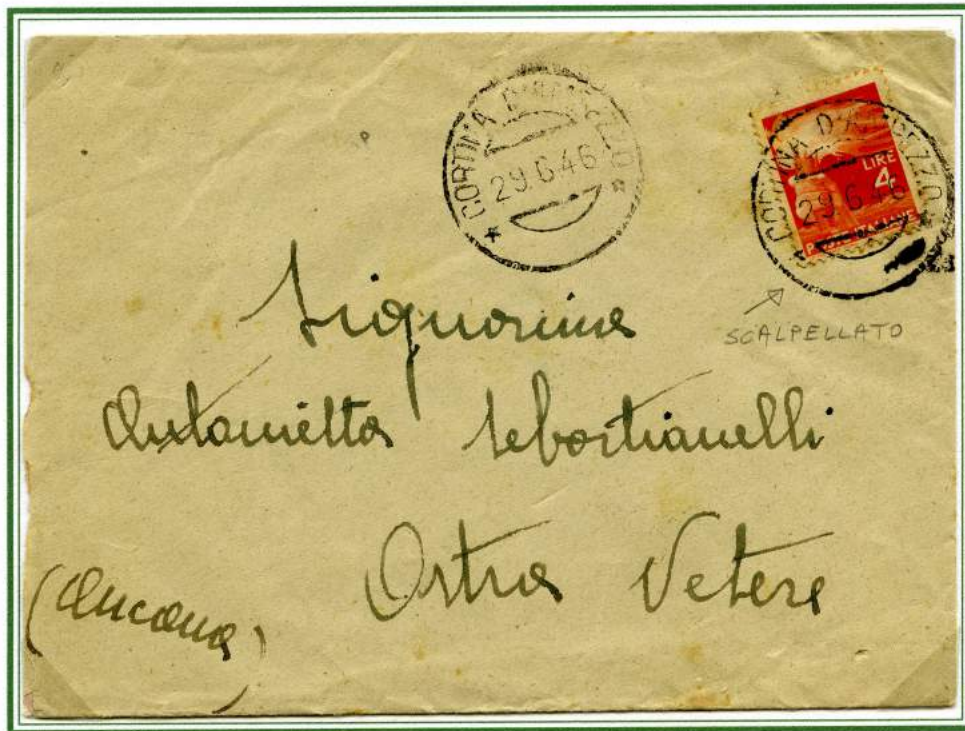 CORTINA D'AMPEZZO
29.6.46
CORTINA D'AMPEZZO
29.6.46
LIRE
4
POSTE ITALIANE
SCALPELLATO
Signorina
Antonietta Sebastianelli
Ostra Vetere
(Ancona)